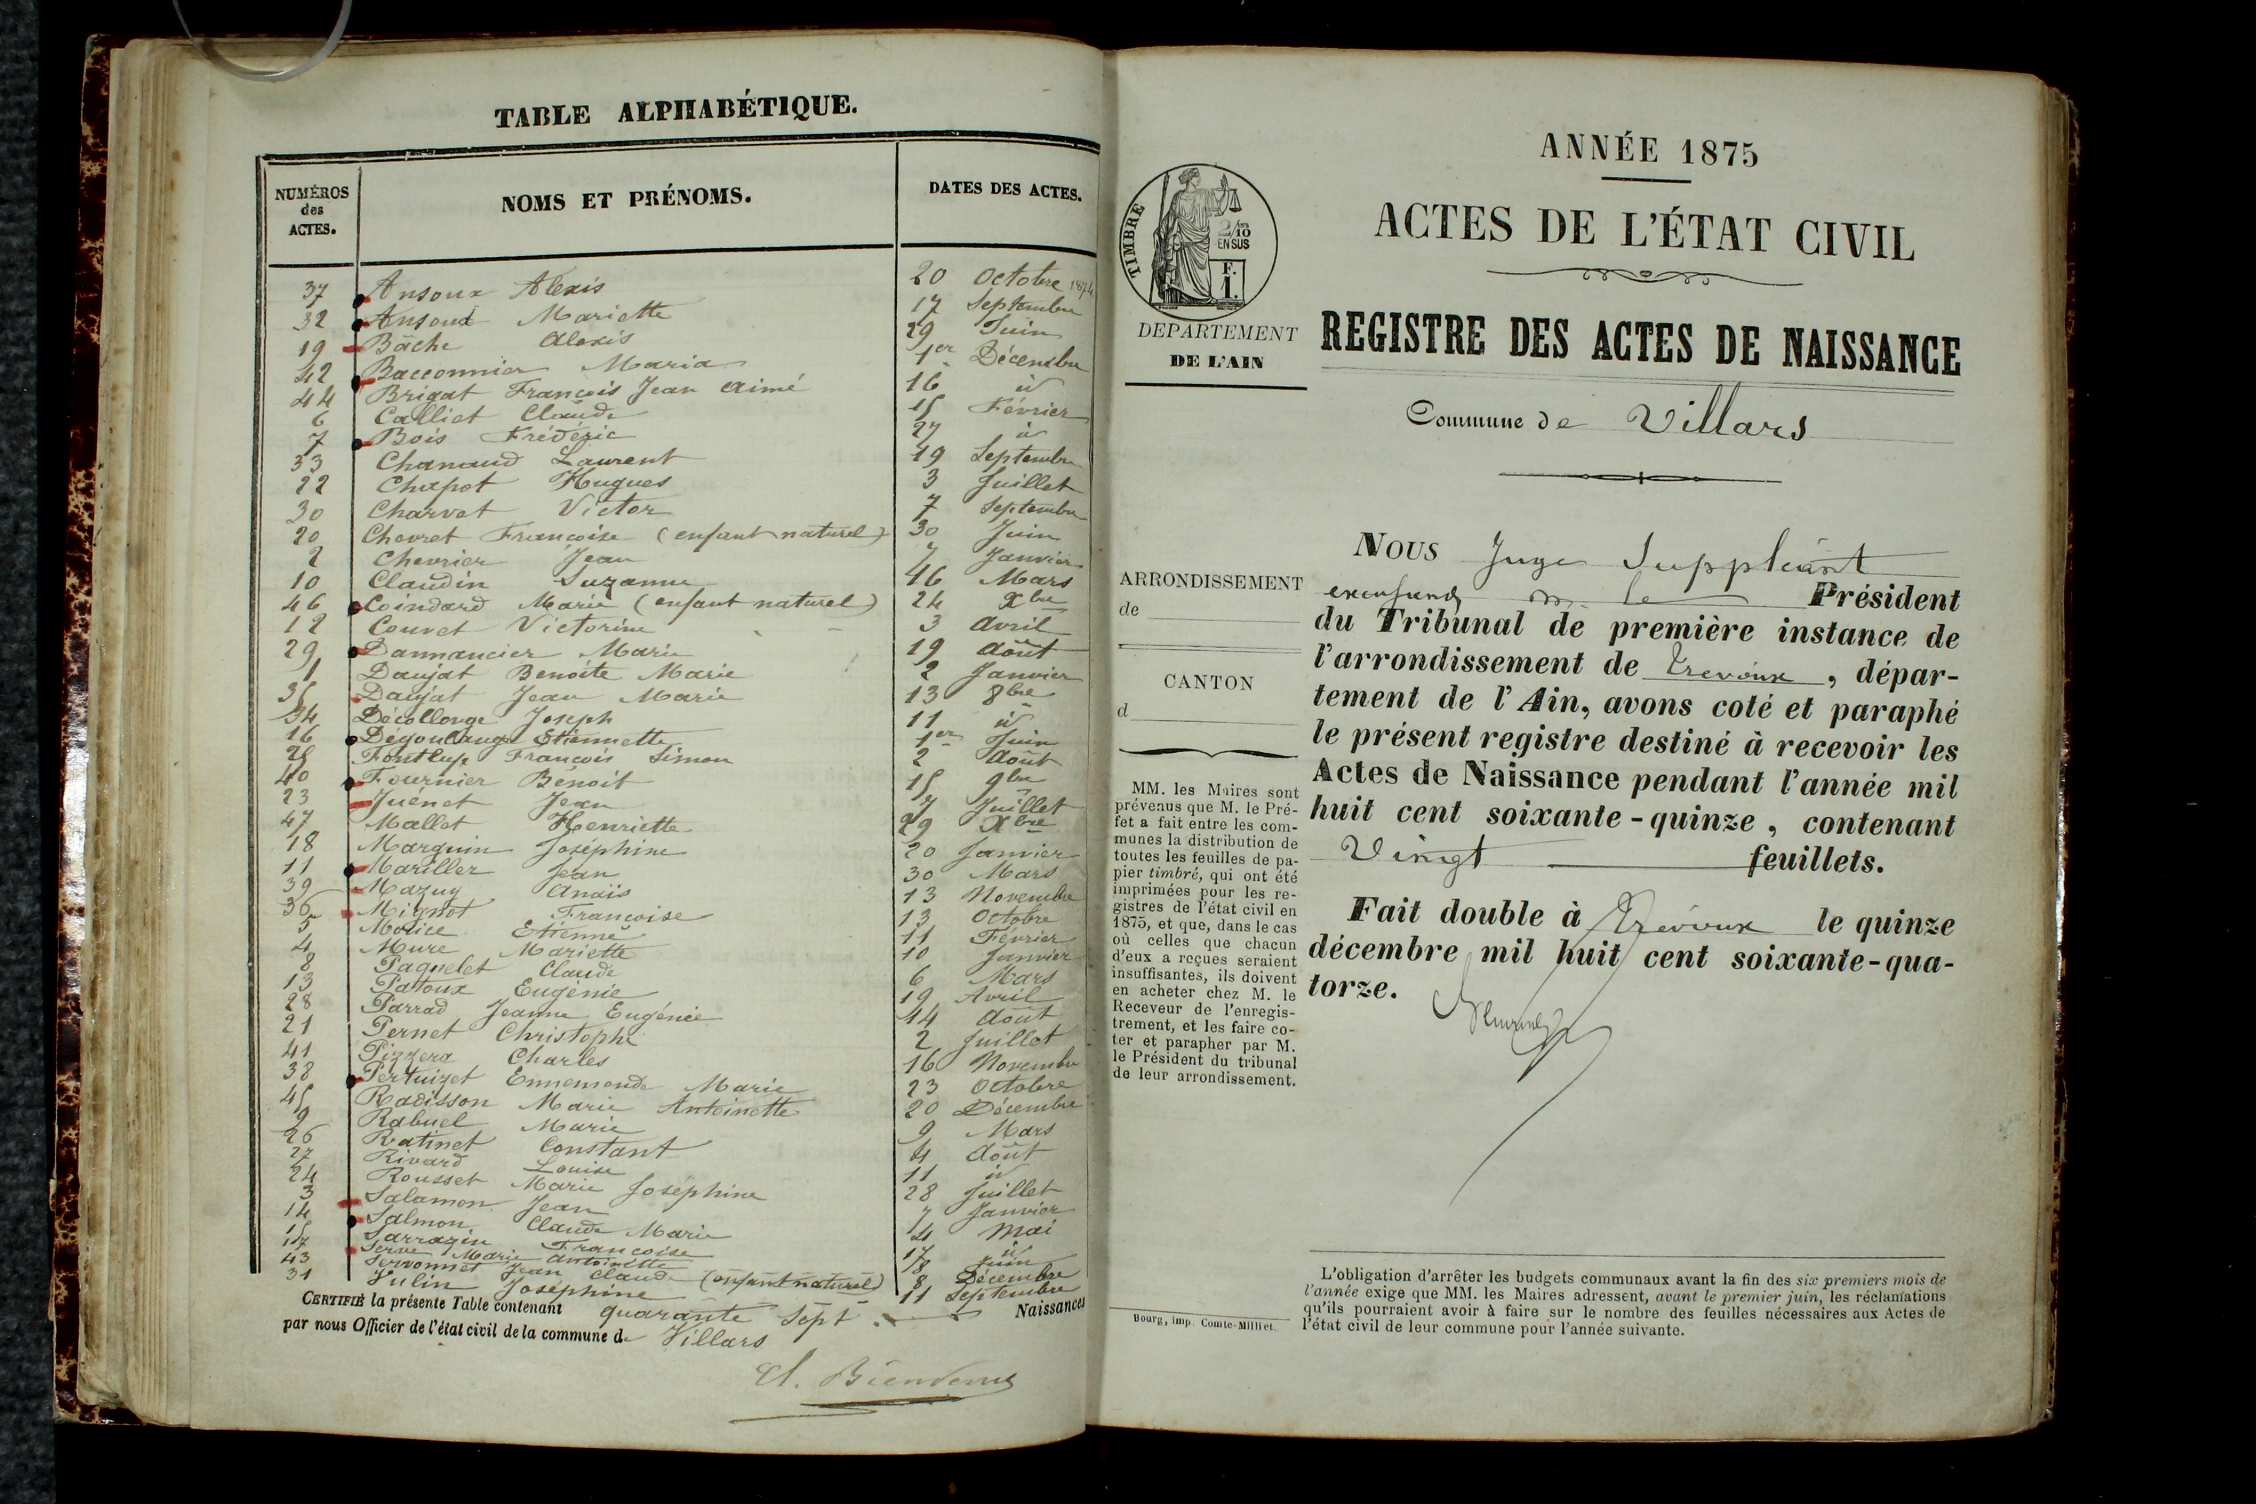 TABLE ALPHABÉTIQUE.
NUMÉROS des ACTES. NOMS ET PRÉNOMS. DATES DES ACTES.
37 Ansoux Alexis 20 Octobre 1874
32 Ansoux Mariette 17 Septembre
19 Bâche Alexis 29 Juin
42 Bacconnier Maria 1er Décembre
44 Brigat François Jean Aimé 16 id
6 Calliet Claude 15 Février
7 Bois Frédéric 27 id
33 Chanaud Laurent 19 Septembre
22 Chapot Hugues 3 Juillet
30 Charvet Victor 7 Septembre
20 Chevret Françoise (enfant naturel) 30 Juin
2 Chevrier Jean 7 Janvier
10 Claudin Suzanne 16 Mars
46 Coindard Marie (enfant naturel) 24 Xbre
12 Couvet Victorine 3 Avril
29 Dannancier Marie 19 Août
1 Daujat Benoite Marie 2 Janvier
35 Daujat Jean Marie 13 8bre
34 Décollonge Joseph 11 id
16 Dégoulange Etiennette 1er Juin
25 Fontlup François Simon 2 Août
40 Fournier Benoit 15 9bre
23 Juénet Jean 7 Juillet
47 Mallet Henriette 29 Xbre
18 Marguin Joséphine 20 Janvier
11 Mariller Jean 30 Mars
39 Mazuy Anaïs 13 Novembre
36 Mignot Françoise 13 Octobre
5 Molice Etienne 11 Février
4 Mure Mariette 10 Janvier
8 Paquelet Claude 6 Mars
13 Patoux Eugénie 19 Avril
28 Parrad Jeanne Eugénie 14 Août
21 Pernet Christophe 2 Juillet
41 Pizzera Charles 16 Novembre
38 Pertuizet Ennemonde Marie 23 Octobre
45 Radisson Marie Antoinette 20 Décembre
9 Rabuel Marie 9 Mars
26 Ratinet Constant 4 Août
27 Rivard Louise 11 id
24 Rousset Marie Joséphine 28 Juillet
3 Salamon Jean 7 Janvier
14 Salmon Claude Marie 4 Mai
15 Sarrazin Françoise 17 id
17 Serve Marie Antoinette 8 Juin
43 Servonnet Jean Claude (enfant naturel) 8 Décembre
31 Vulin Joséphine 11 Septembre
CERTIFIÉ la présente Table contenant quarante Sept Naissances
par nous Officier de l'état civil de la commune de Villars
Cl. Bienvenu
ANNÉE 1875
ACTES DE L'ÉTAT CIVIL
TIMBRE
2/10
EN SUS
F.
1.
DÉPARTEMENT
DE L'AIN
REGISTRE DES ACTES DE NAISSANCE
Commune de Villars
ARRONDISSEMENT
de
CANTON
d
MM. les Maires sont
prévenus que M. le Pré-
fet a fait entre les com-
munes la distribution de
toutes les feuilles de pa-
pier timbré, qui ont été
imprimées pour les re-
gistres de l'état civil en
1875, et que, dans le cas
où celles que chacun
d'eux a reçues seraient
insuffisantes, ils doivent
en acheter chez M. le
Receveur de l'enregis-
trement, et les faire co-
ter et parapher par M.
le Président du tribunal
de leur arrondissement.
Bourg, imp. Comte-Milliet.
NOUS Juge Suppléant
le Président
du Tribunal de première instance de
l'arrondissement de Trevoux, dépar-
tement de l'Ain, avons coté et paraphé
le présent registre destiné à recevoir les
Actes de Naissance pendant l'année mil
huit cent soixante-quinze, contenant
Vingt feuillets.
Fait double à Trévoux le quinze
décembre mil huit cent soixante-qua-
torze.
L'obligation d'arrêter les budgets communaux avant la fin des six premiers mois de
l'année exige que MM. les Maires adressent, avant le premier juin, les réclamations
qu'ils pourraient avoir à faire sur le nombre des feuilles nécessaires aux Actes de
l'état civil de leur commune pour l'année suivante.